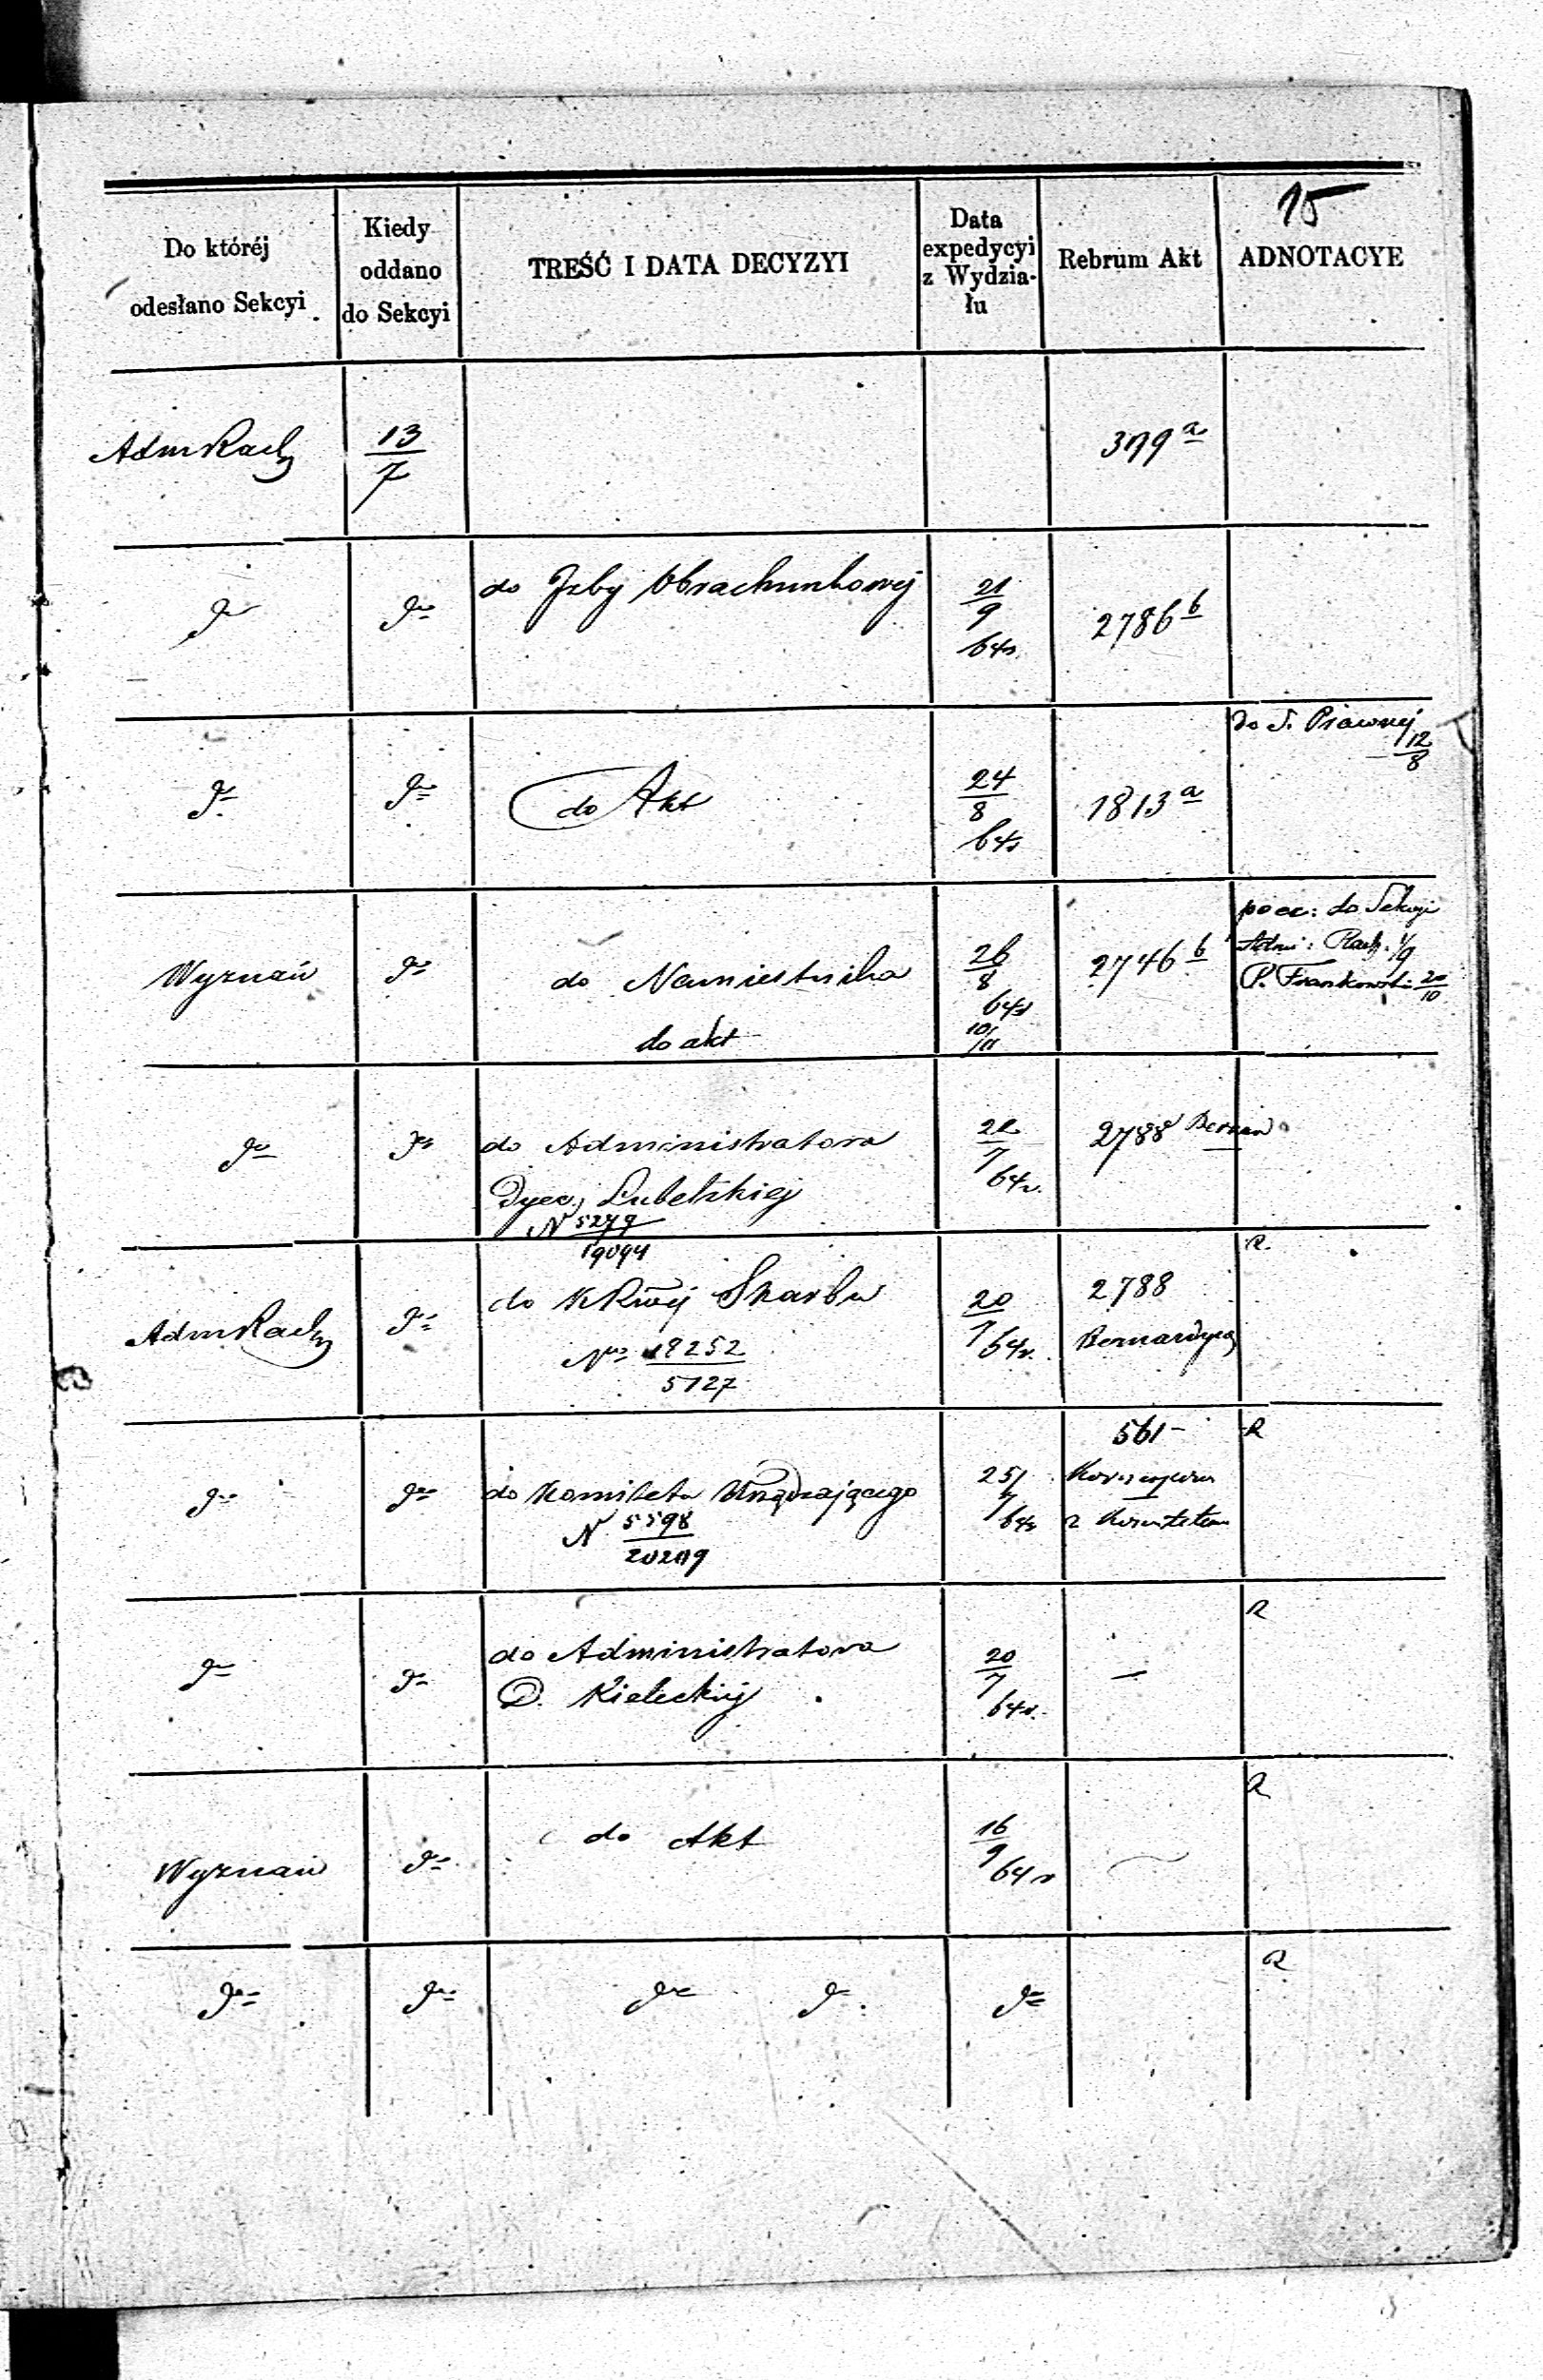 15
Do któréj
odesłano Sekcyi
Kiedy
oddano
do Sekcyi
TREŚĆ I DATA DECYZYI
Data
expedycyi
z Wydzia-
łu
Rebrum Akt
ADNOTACYE
AdmRach
13
7
399 a
do
do
do Izby Obrachunkowej
21
9
64r
2786 b
do
do
do Akt
24
8
64r
1813 a
do S. Prawnej
12
8
Wyznań
do
do Namiestnika
do akt
26
8
64r
10/11
2746 b
do Sekcyi
Admi: Rach. 1/9
P. Frankowski 20/10
do
do
do Administratora
Dyec. Lubelskiej
N 5279
19094
22
7
64r.
2788 Bernard
AdmRach
do
do KRwej Skarbu
No 18252
5127
20
7
64r.
2788
Bernardyni
R
do
do
do Komitetu Urządzającego
N 5598
20209
25/
7
64r
561 -
z Komitetem
R
do
do
do Administratora
D. Kieleckiej
20
7
64r.
—
R
Wyznań
do
do Akt
16
9
64r
R
do
do
do do
do
R